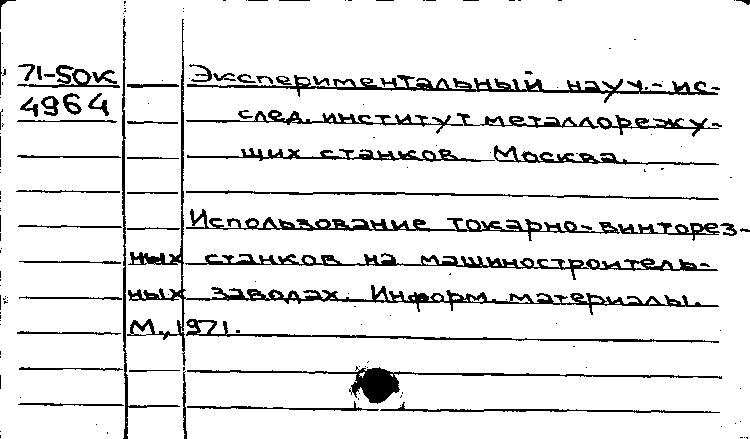 71-50к Экспериментальный науч.-ис-
4964 след. институт металлорежу-
щих станков. Москва.
Использование токарно-винторез-
ных станков на машинострoитель-
ных заводах. Информ. материалы.
М., 1971.